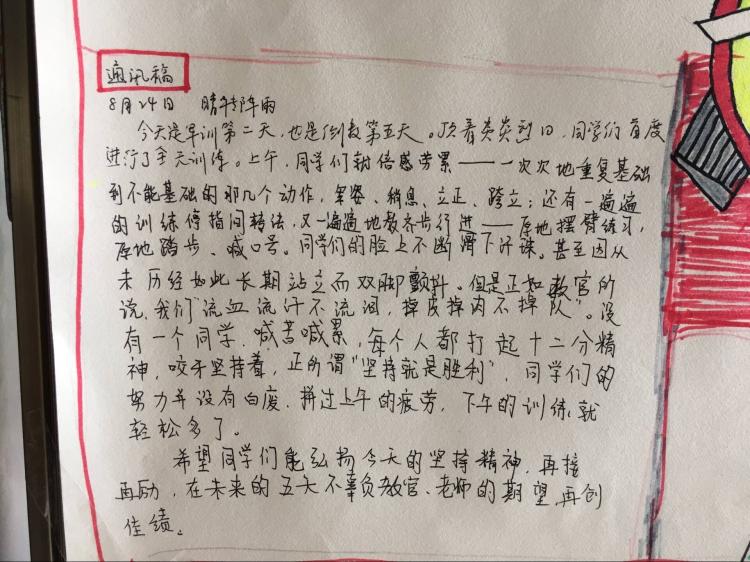 通讯稿
8月24日 晴转阵雨
今天是军训第二天,也是倒数第五天。顶着炎炎烈日,同学们首度
进行了全天训练。上午,同学们就倍感劳累——一次次地重复基础
到不能基础的那几个动作,军姿、稍息、立正、跨立;还有一遍遍
的训练停指间转法,又一遍遍地教齐步行进——原地摆臂练习,
原地踏步、喊口号。同学们的脸上不断滑下汗珠。甚至因从
未历经如此长期站立而双脚颤抖。但是正如教官所
说,我们“流血流汗不流泪,掉皮掉肉不掉队”。没
有一个同学,喊苦喊累,每个人都打起十二分精
神,咬牙坚持着,正所谓“坚持就是胜利”,同学们的
努力并没有白废.拼过上午的疲劳,下午的训练就
轻松多了。
希望同学们能弘扬今天的坚持精神,再接
再励,在未来的五天不辜负教官、老师的期望,再创
佳绩。